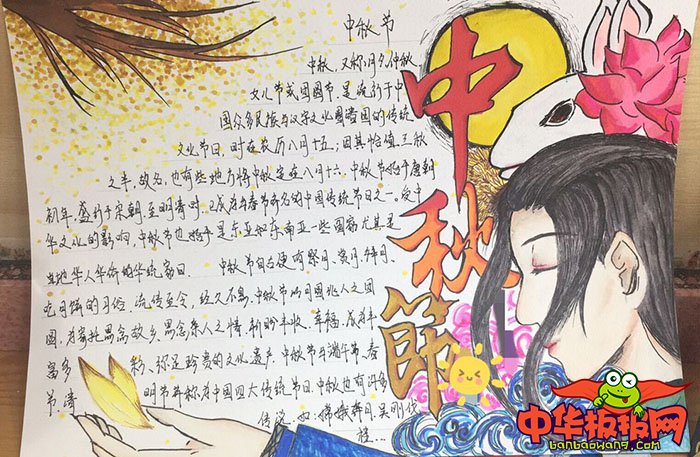 中秋节
中秋,又称月夕、仲秋、
女儿节或团圆节,是流行于中
国众多民族与汉字文化圈诸国的传统
文化节日,时在农历八月十五;因其恰值三秋
之半,故名,也有些地方将中秋定在八月十六。中秋节始于唐朝
初年,盛行于宋朝,至明清时,已成为与春节齐名的中国传统节日之一。受中
华文化的影响,中秋节也是东亚和东南亚一些国家尤其是
当地华人华侨的传统节日。 中秋节自古便有祭月、赏月、拜月、
吃月饼的习俗,流传至今,经久不息。中秋节以月圆兆人之团
圆,为寄托思念故乡,思念亲人之情,祈盼丰收、幸福,成为丰
富多 彩、弥足珍贵的文化遗产。中秋节与端午节、春
节、清 明节并称为中国四大传统节日。中秋也有许多
传说,如:嫦娥奔月、吴刚伐
桂...
中秋節
中华板报网
banbaowang.com